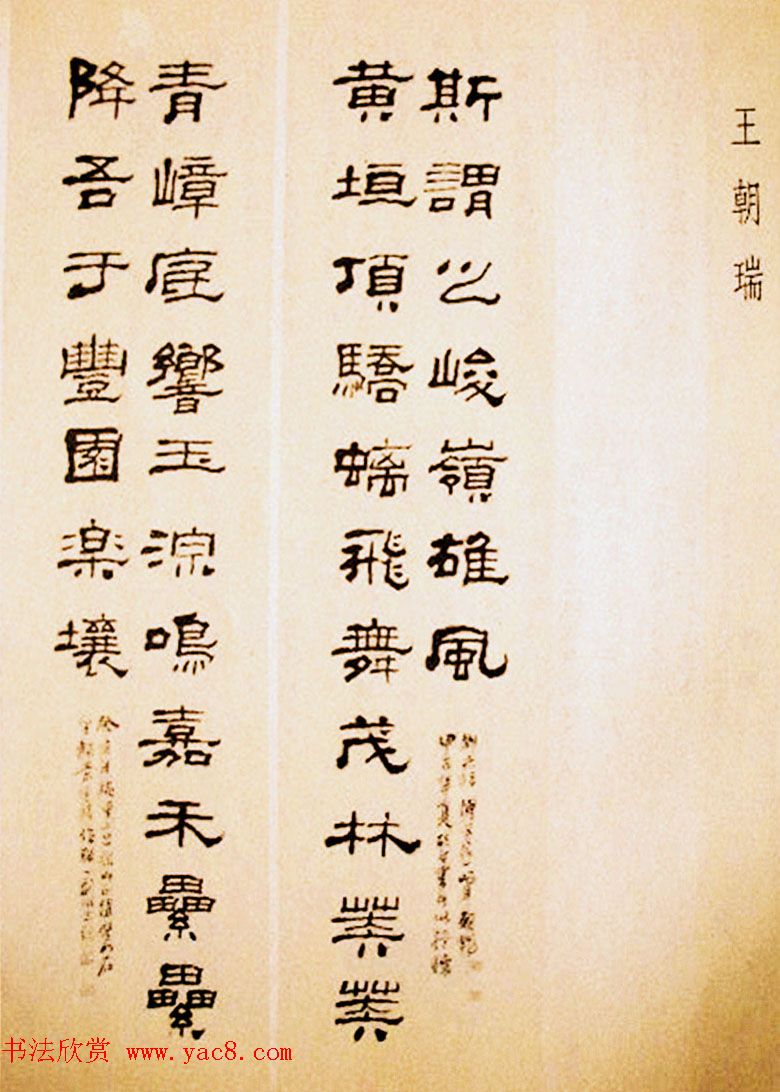 王朝瑞
青嶂庭響玉淙鳴嘉禾纍纍
降吾于豐園楽壤
黄垣頂驕螭飛舞茂林莽莽
斯謂之峻嶺雄風
书法欣赏 www.yac8.com